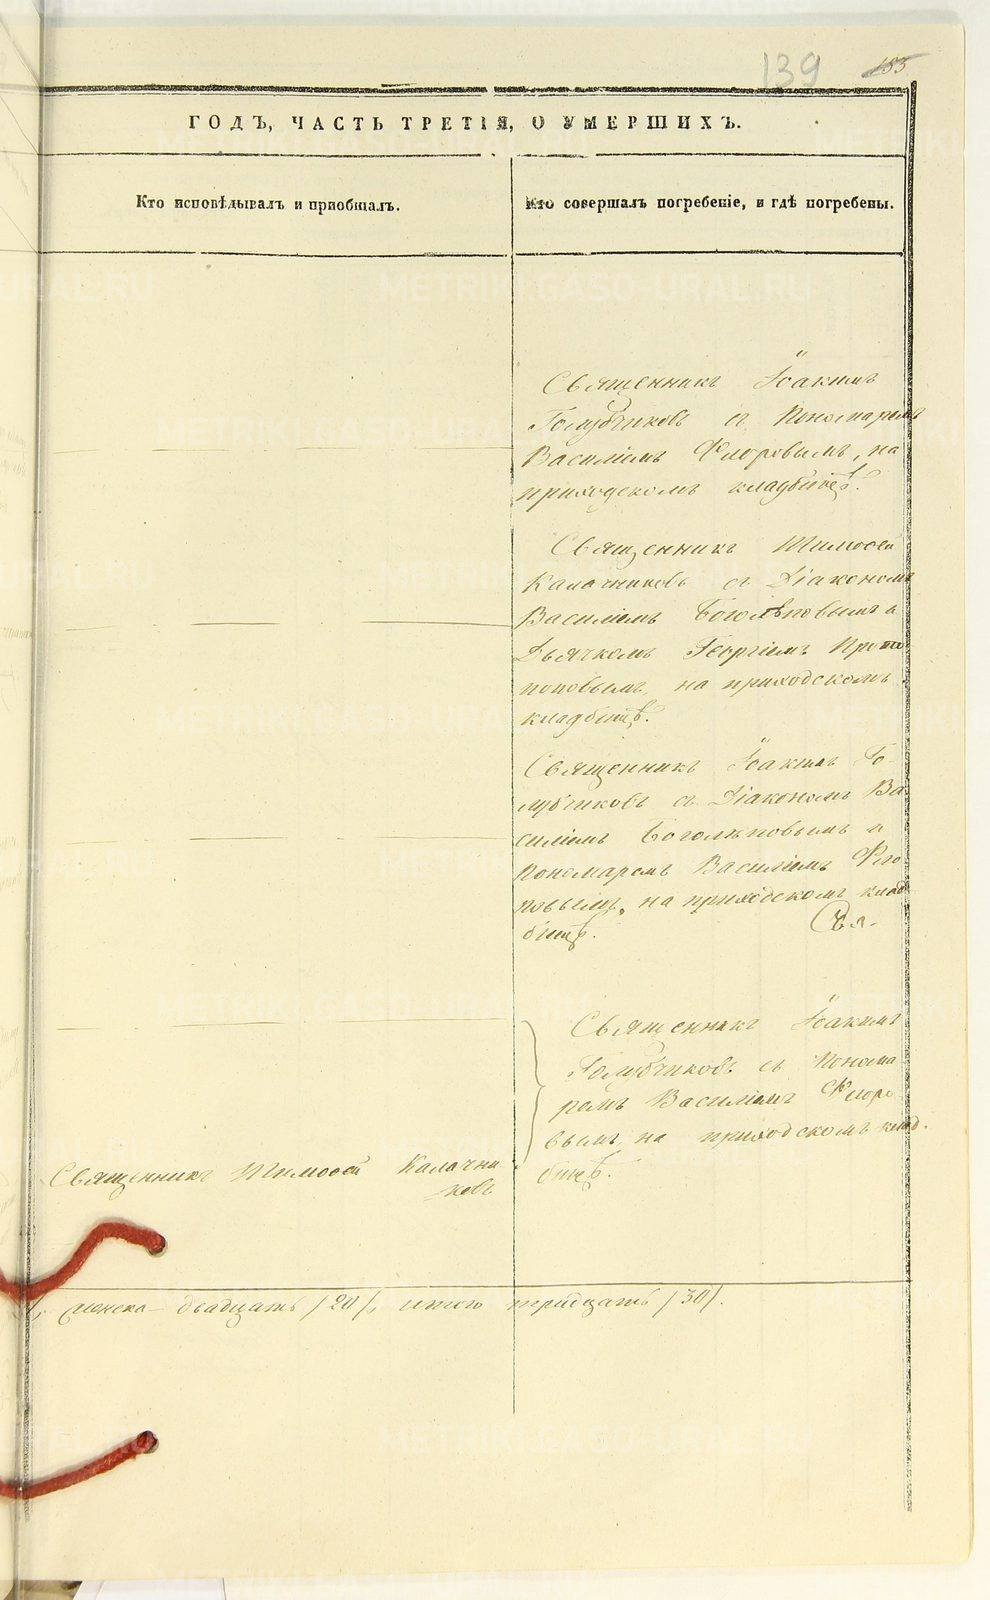 139
183
ГОДЪ, ЧАСТЬ ТРЕТІЯ, О УМЕРШИХЪ.
Кто исповѣдывалъ и приобщалъ.
Кто совершалъ погребеніе, и гдѣ погребены.
Священникъ Іоакимъ
Голубчиковъ съ Пономаремъ
Василіемъ Флоровымъ, на
приходскомъ кладбищѣ.
Священникъ Тимоѳей
Калачниковъ съ Діакономъ
Василіемъ Боголѣповымъ и
Дьячкомъ Георгіемъ Прото
поповымъ, на приходскомъ
кладбищѣ.
Священникъ Іоакимъ Го-
лубчиковъ съ Діакономъ Ва
силіемъ Боголѣповымъ и
Пономаремъ Василіемъ Фло
ровымъ, на приходскомъ клад
бищѣ.
Священникъ Іоакимъ
Голубчиковъ съ Понома
ремъ Василіемъ Флоро
вымъ, на приходскомъ клад.
бищѣ.
Священникъ Тимоѳей Калачни
ковъ
женска двадцать /20/, итого тридцать /30/.
METRIKI.GASO-URAL.RU